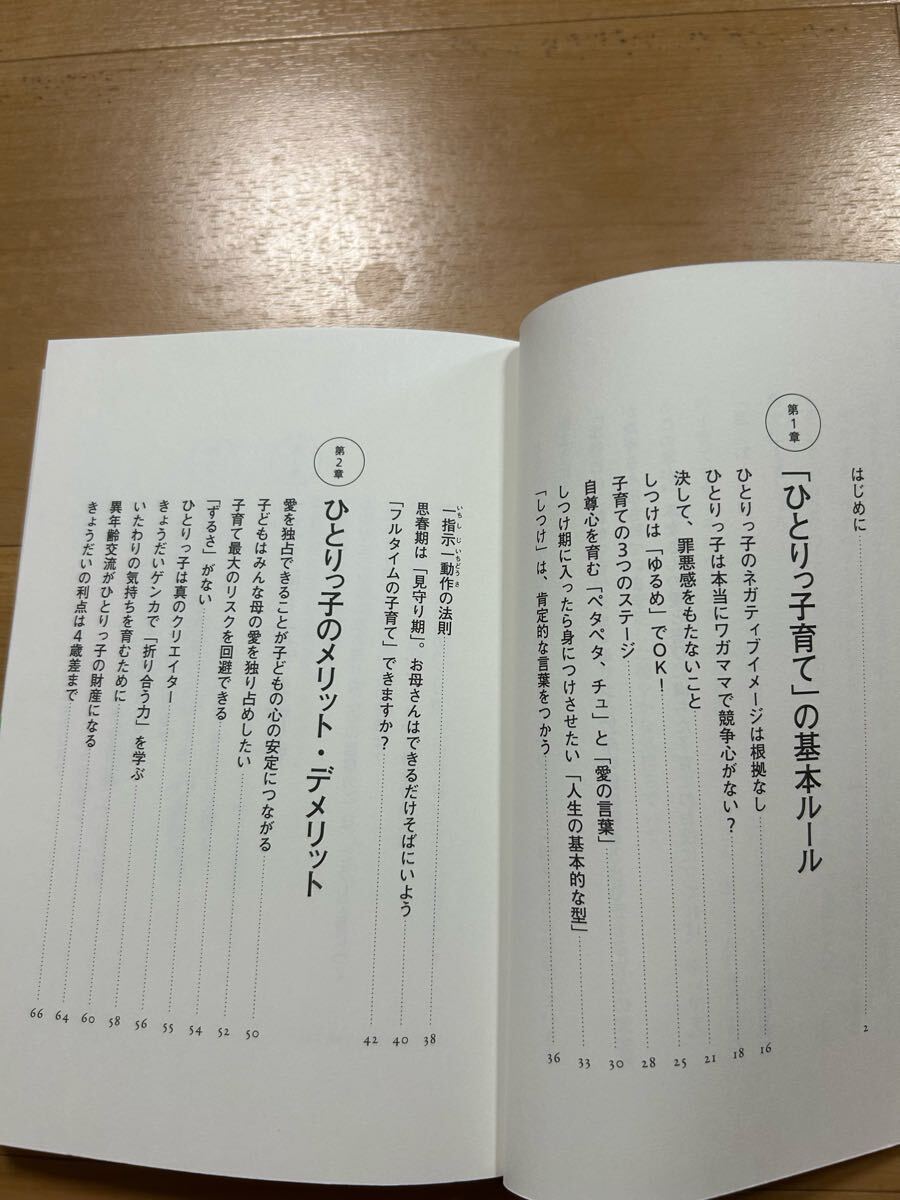 はじめに 2
第1章
「ひとりっ子育て」の基本ルール
ひとりっ子のネガティブイメージは根拠なし 16
ひとりっ子は本当にワガママで競争心がない? 18
決して、罪悪感をもたないこと 21
しつけは「ゆるめ」でOK! 25
子育ての3つのステージ 28
自尊心を育む「ペタペタ、チュ」と「愛の言葉」 30
しつけ期に入ったら身につけさせたい「人生の基本的な型」 33
「しつけ」は、肯定的な言葉をつかう 36
いちしじいちどうさ
一指示一動作の法則 38
思春期は「見守り期」。お母さんはできるだけそばにいよう 40
「フルタイムの子育て」できますか? 42
第2章
ひとりっ子のメリット・デメリット
愛を独占できることが子どもの心の安定につながる 50
子どもはみんな母の愛を独り占めしたい 52
子育て最大のリスクを回避できる 54
「ずるさ」がない 55
ひとりっ子は真のクリエイター 56
きょうだいゲンカで「折り合う力」を学ぶ 58
いたわりの気持ちを育むために 60
異年齢交流がひとりっ子の財産になる 64
きょうだいの利点は4歳差まで 66